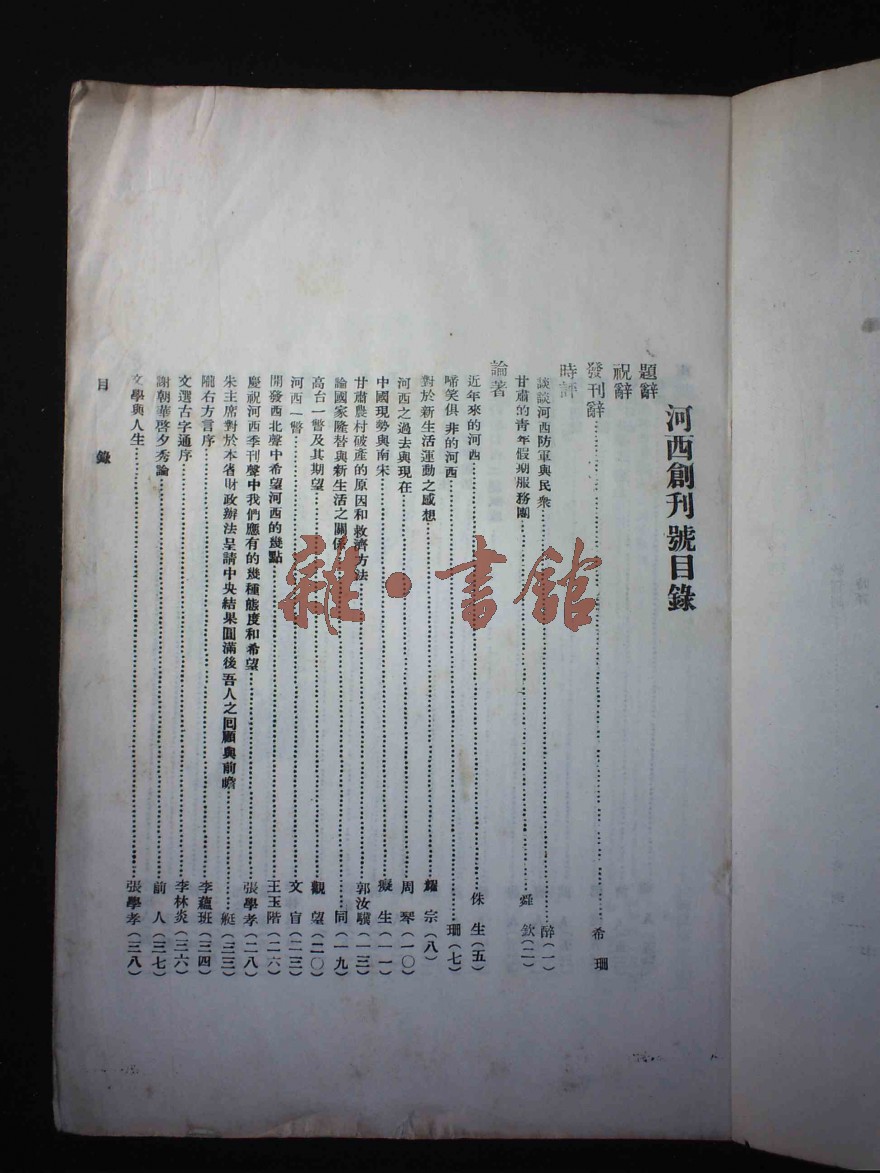 河西創刊號目錄
題辭
祝辭
發刊辭…………希珊
時評
談談河西防軍與民衆…………醉(一)
甘肅的青年假期服務團…………舜欽(二)
論著
近年來的河西…………侏生(五)
啼笑俱非的河西…………珊(七)
對於新生活運動之感想…………耀宗(八)
河西之過去與現在…………周琴(一〇)
中國現勢與南宋…………癡生(一一)
甘肅農村破產的原因和救濟方法…………郭汝驥(一三)
論國家隆替與新生活之關係…………同(一九)
高台一瞥及其期望…………觀望(二〇)
河西一瞥…………文盲(二三)
開發西北聲中希望河西的幾點…………王玉階(二六)
慶祝河西季刊聲中我們應有的幾種態度和希望…………張學孝(二八)
朱主席對於本省財政辦法呈請中央結果圓滿後吾人之囘顧與前瞻…………艇(三三)
隴右方言序…………李蘊班(三四)
文選古字通序…………李林炎(三六)
謝朝華啓夕秀論…………前人(三七)
文學與人生…………張學孝(三八)
目錄
雜·書館